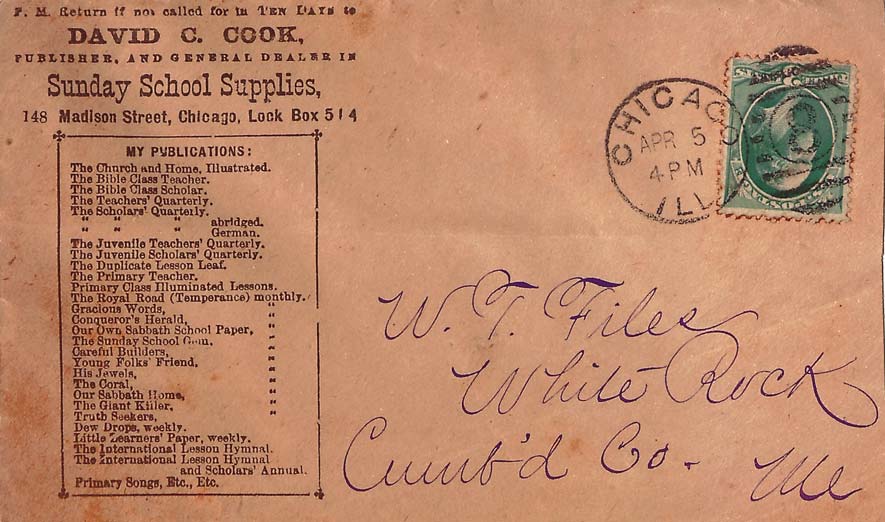 P. M. Return if not called for in TEN DAYS to
DAVID C. COOK,
PUBLISHER, AND GENERAL DEALER IN
Sunday School Supplies,
148 Madison Street, Chicago, Lock Box 514
MY PUBLICATIONS:
The Church and Home, Illustrated.
The Bible Class Teacher.
The Bible Class Scholar.
The Teachers' Quarterly.
The Scholars' Quarterly.
" " " abridged.
" " " German.
The Juvenile Teachers' Quarterly.
The Juvenile Scholars' Quarterly.
The Duplicate Lesson Leaf.
The Primary Teacher.
Primary Class Illuminated Lessons.
The Royal Road (Temperance) monthly.
Gracious Words, "
Conqueror's Herald, "
Our Own Sabbath School Paper, "
The Sunday School Gem. "
Careful Builders, "
Young Folks' Friend, "
His Jewels, "
The Coral, "
Our Sabbath Home, "
The Giant Killer, "
Truth Seekers, "
Dew Drops, weekly.
Little Learners' Paper, weekly.
The International Lesson Hymnal.
The International Lesson Hymnal
and Scholars' Annual.
Primary Songs, Etc., Etc.
CHICAGO
APR 5
4 PM
ILL
W. T. Files
White Rock
Cumb'd Co. Me